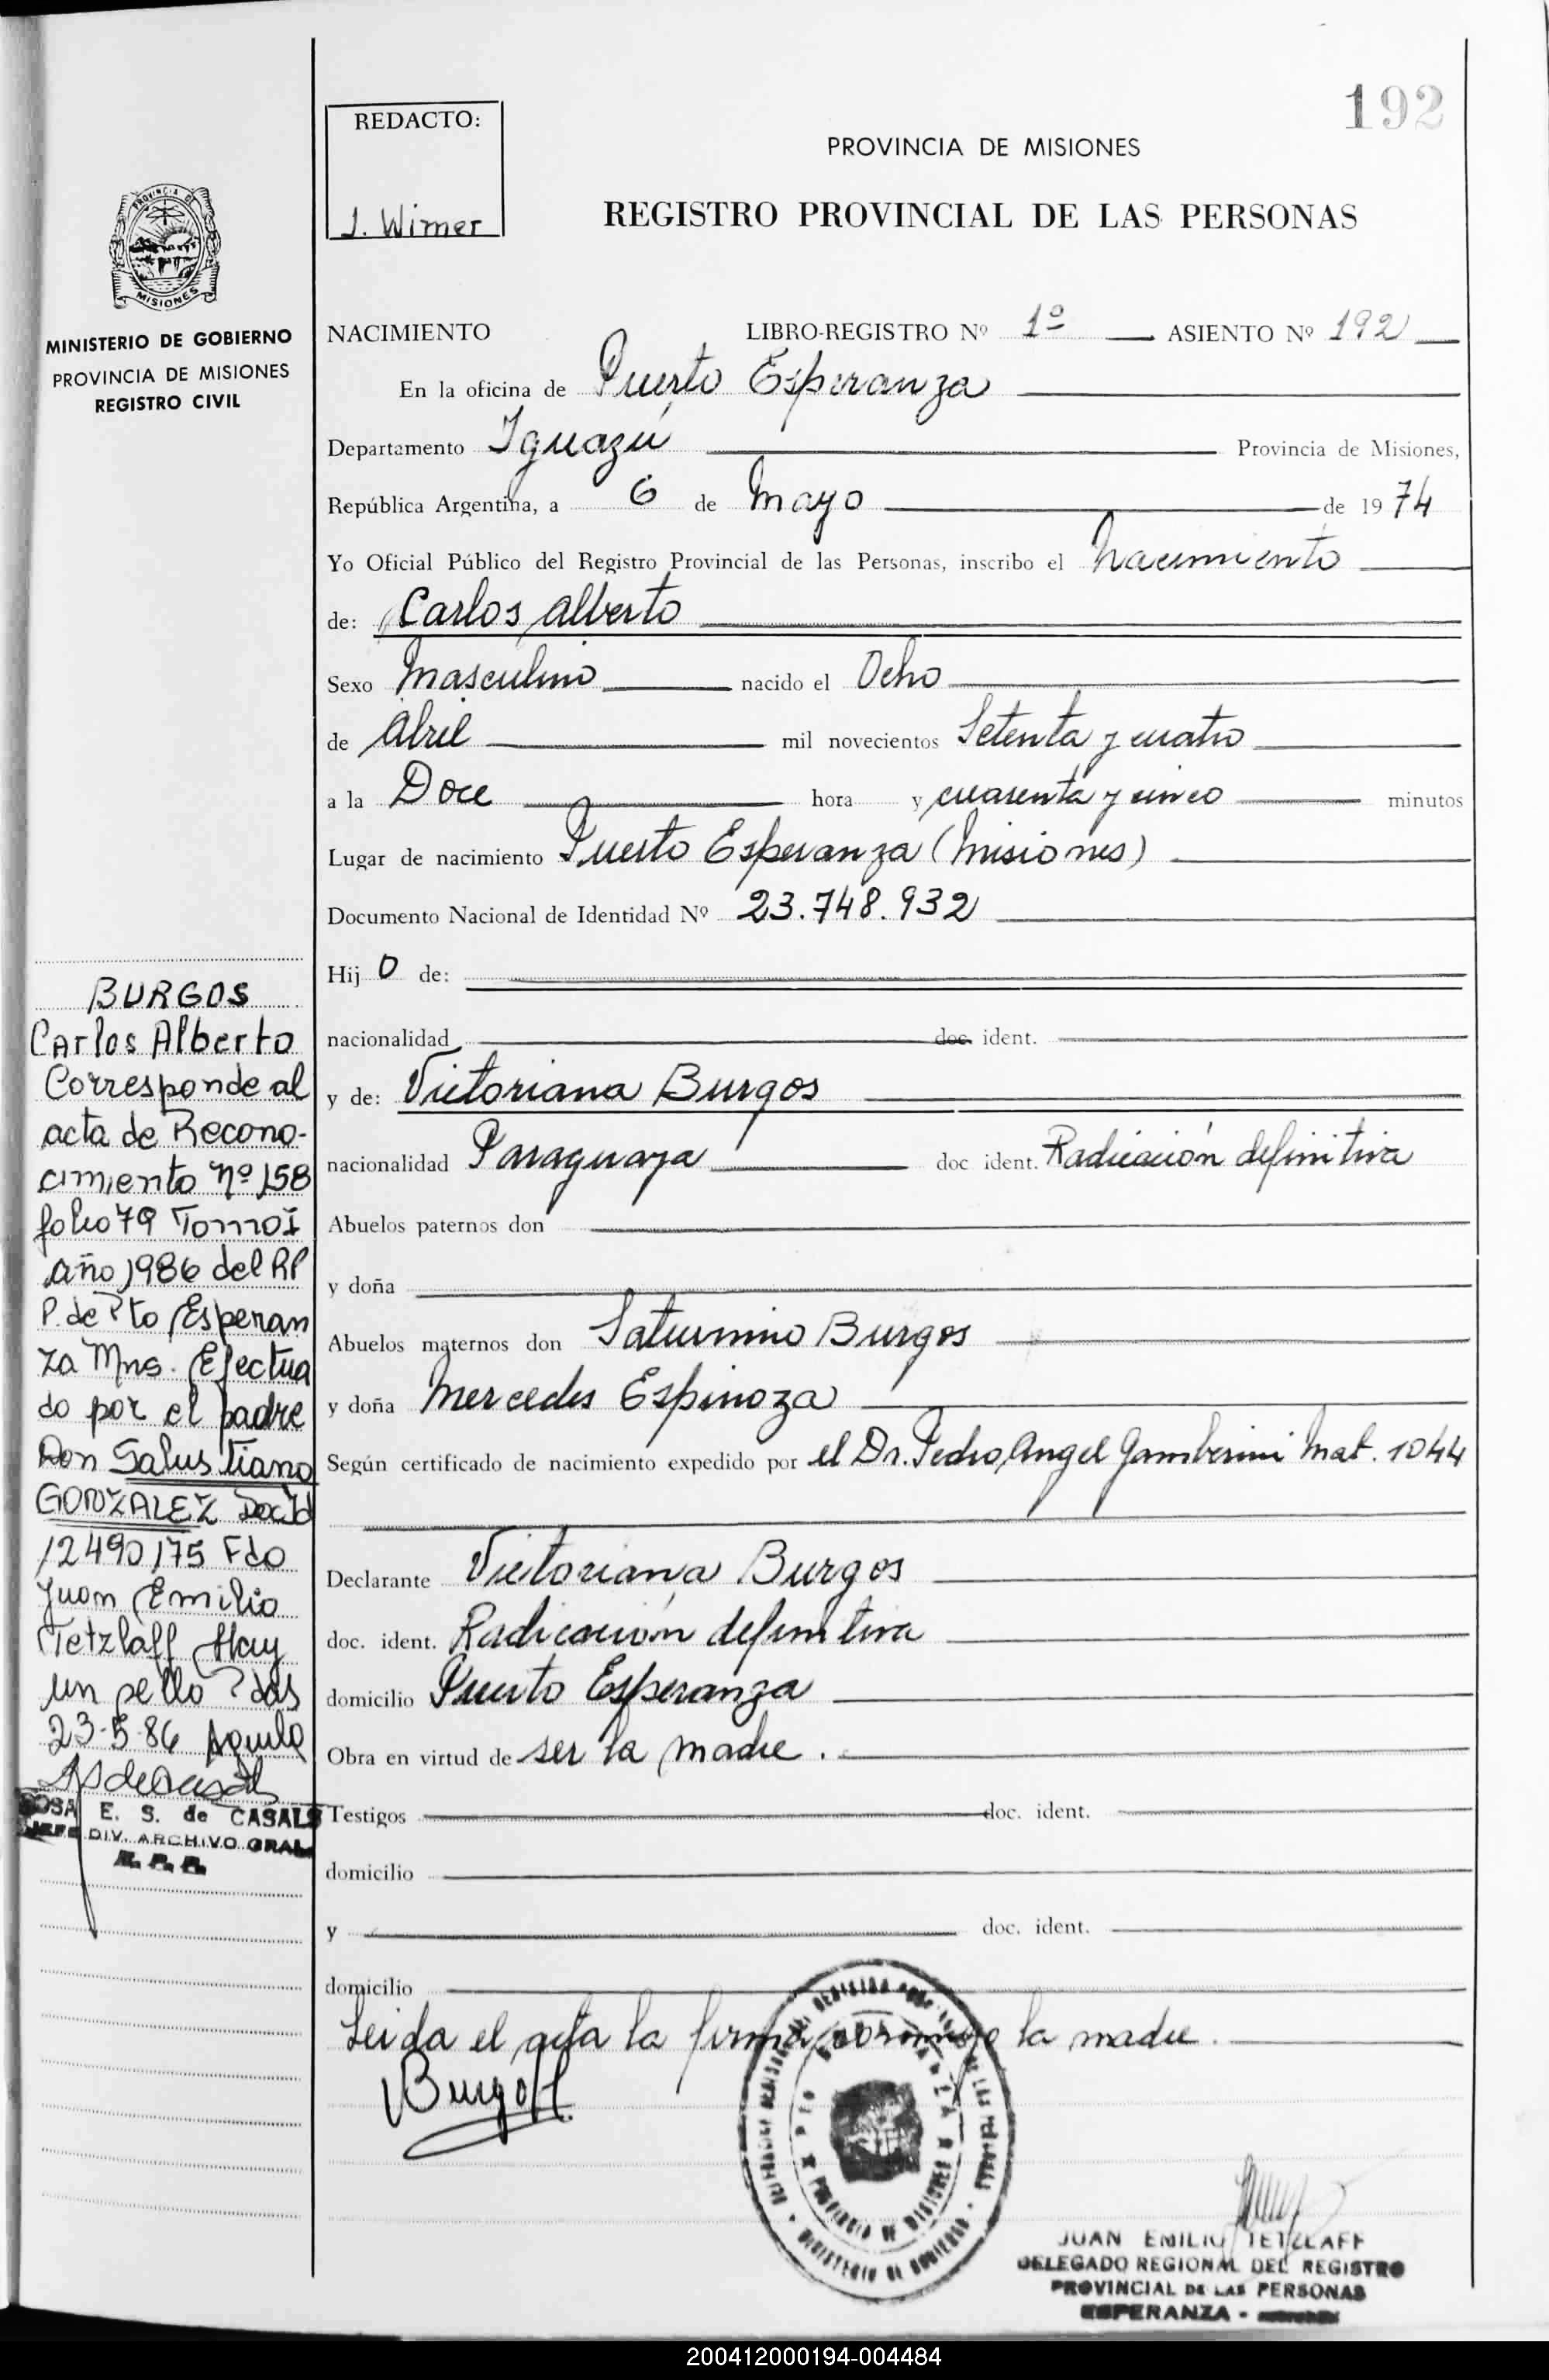 192
REDACTO:
J. Wimer
PROVINCIA DE MISIONES
REGISTRO PROVINCIAL DE LAS PERSONAS
PROVINCIA DE
MISIONES
MINISTERIO DE GOBIERNO
PROVINCIA DE MISIONES
REGISTRO CIVIL
NACIMIENTO LIBRO-REGISTRO Nº 1º ASIENTO Nº 192
En la oficina de Puerto Esperanza
Departamento Iguazú Provincia de Misiones,
República Argentina, a 6 de Mayo de 1974
Yo Oficial Público del Registro Provincial de las Personas, inscribo el Nacimiento
de: Carlos Alberto
Sexo Masculino nacido el Ocho
de Abril mil novecientos Setenta y cuatro
a la Doce hora y cuarenta y cinco minutos
Lugar de nacimiento Puerto Esperanza (Misiones)
Documento Nacional de Identidad Nº 23.748.932
Hij o de:
nacionalidad doc. ident.
y de: Victoriana Burgos
nacionalidad Paraguaya doc ident. Radicación definitiva
Abuelos paternos don
y doña
Abuelos maternos don Saturnino Burgos
y doña Mercedes Espinoza
Según certificado de nacimiento expedido por el Dr. Pedro Angel Gamberini Mat. 1044
Declarante Victoriana Burgos
doc. ident. Radicación definitiva
domicilio Puerto Esperanza
Obra en virtud de ser la madre.
Testigos doc. ident.
domicilio
y doc. ident.
domicilio
Leida el acta la firma conmigo la madre.
VBurgos
BURGOS
Carlos Alberto
Corresponde al
acta de Recono-
cimiento Nº 158
folio 79 Tomo I
año 1986 del RP
P. de Pto Esperan
za Mns. Efectua
do por el padre
Don Salustiano
GONZALEZ Doc Id
12490175 Fdo
Juan Emilio
Tetzlaff Hay
un sello Pdas
23-5-86
ROSA E. S. de CASALS
JEFE DIV. ARCHIVO GRAL
R. P. P.
PROVINCIA DE MISIONES
MINISTERIO DE GOBIERNO
JUAN EMILIO TETZLAFF
DELEGADO REGIONAL DEL REGISTRO
PROVINCIAL DE LAS PERSONAS
ESPERANZA -
200412000194-004484